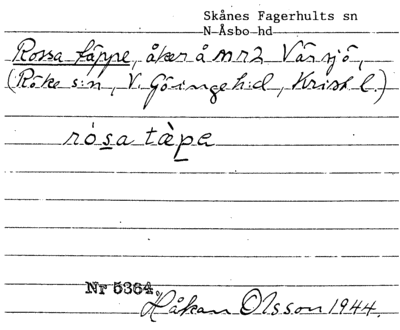 Skånes Fagerhults sn
N Åsbo hd
Rossa täppe, åker å mr2 Vårsjö,
(Röke s:n, V. Göinge h:d, Krist l.)
rósa tàpe
Nr 5364.
Håkan Olsson 1944.